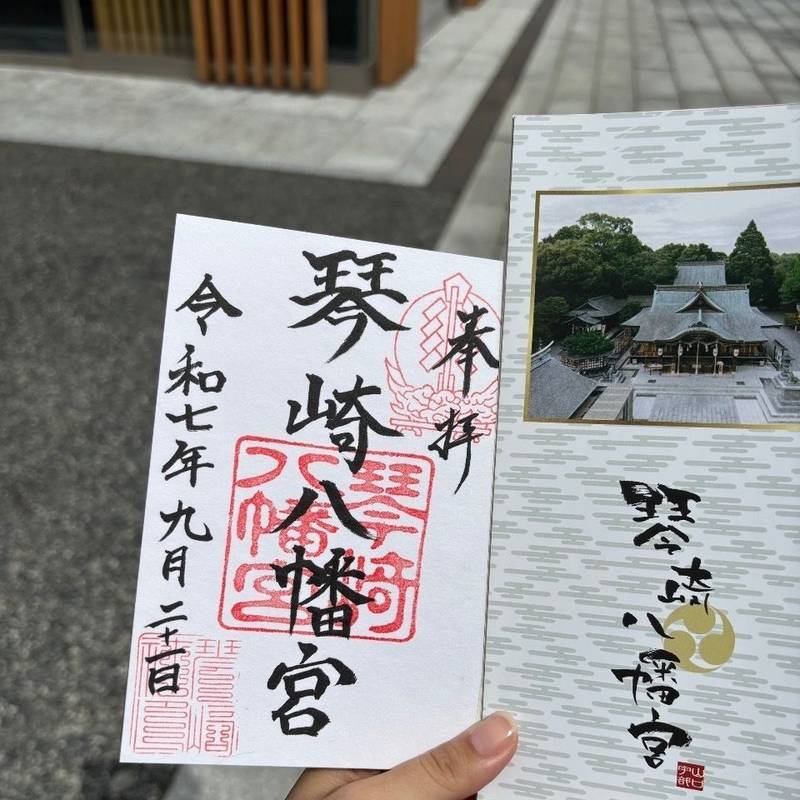 奉拝
琴崎八幡宮
令和七年九月二十一日
琴崎
八幡宮
琴崎八幡宮
山口
宇部